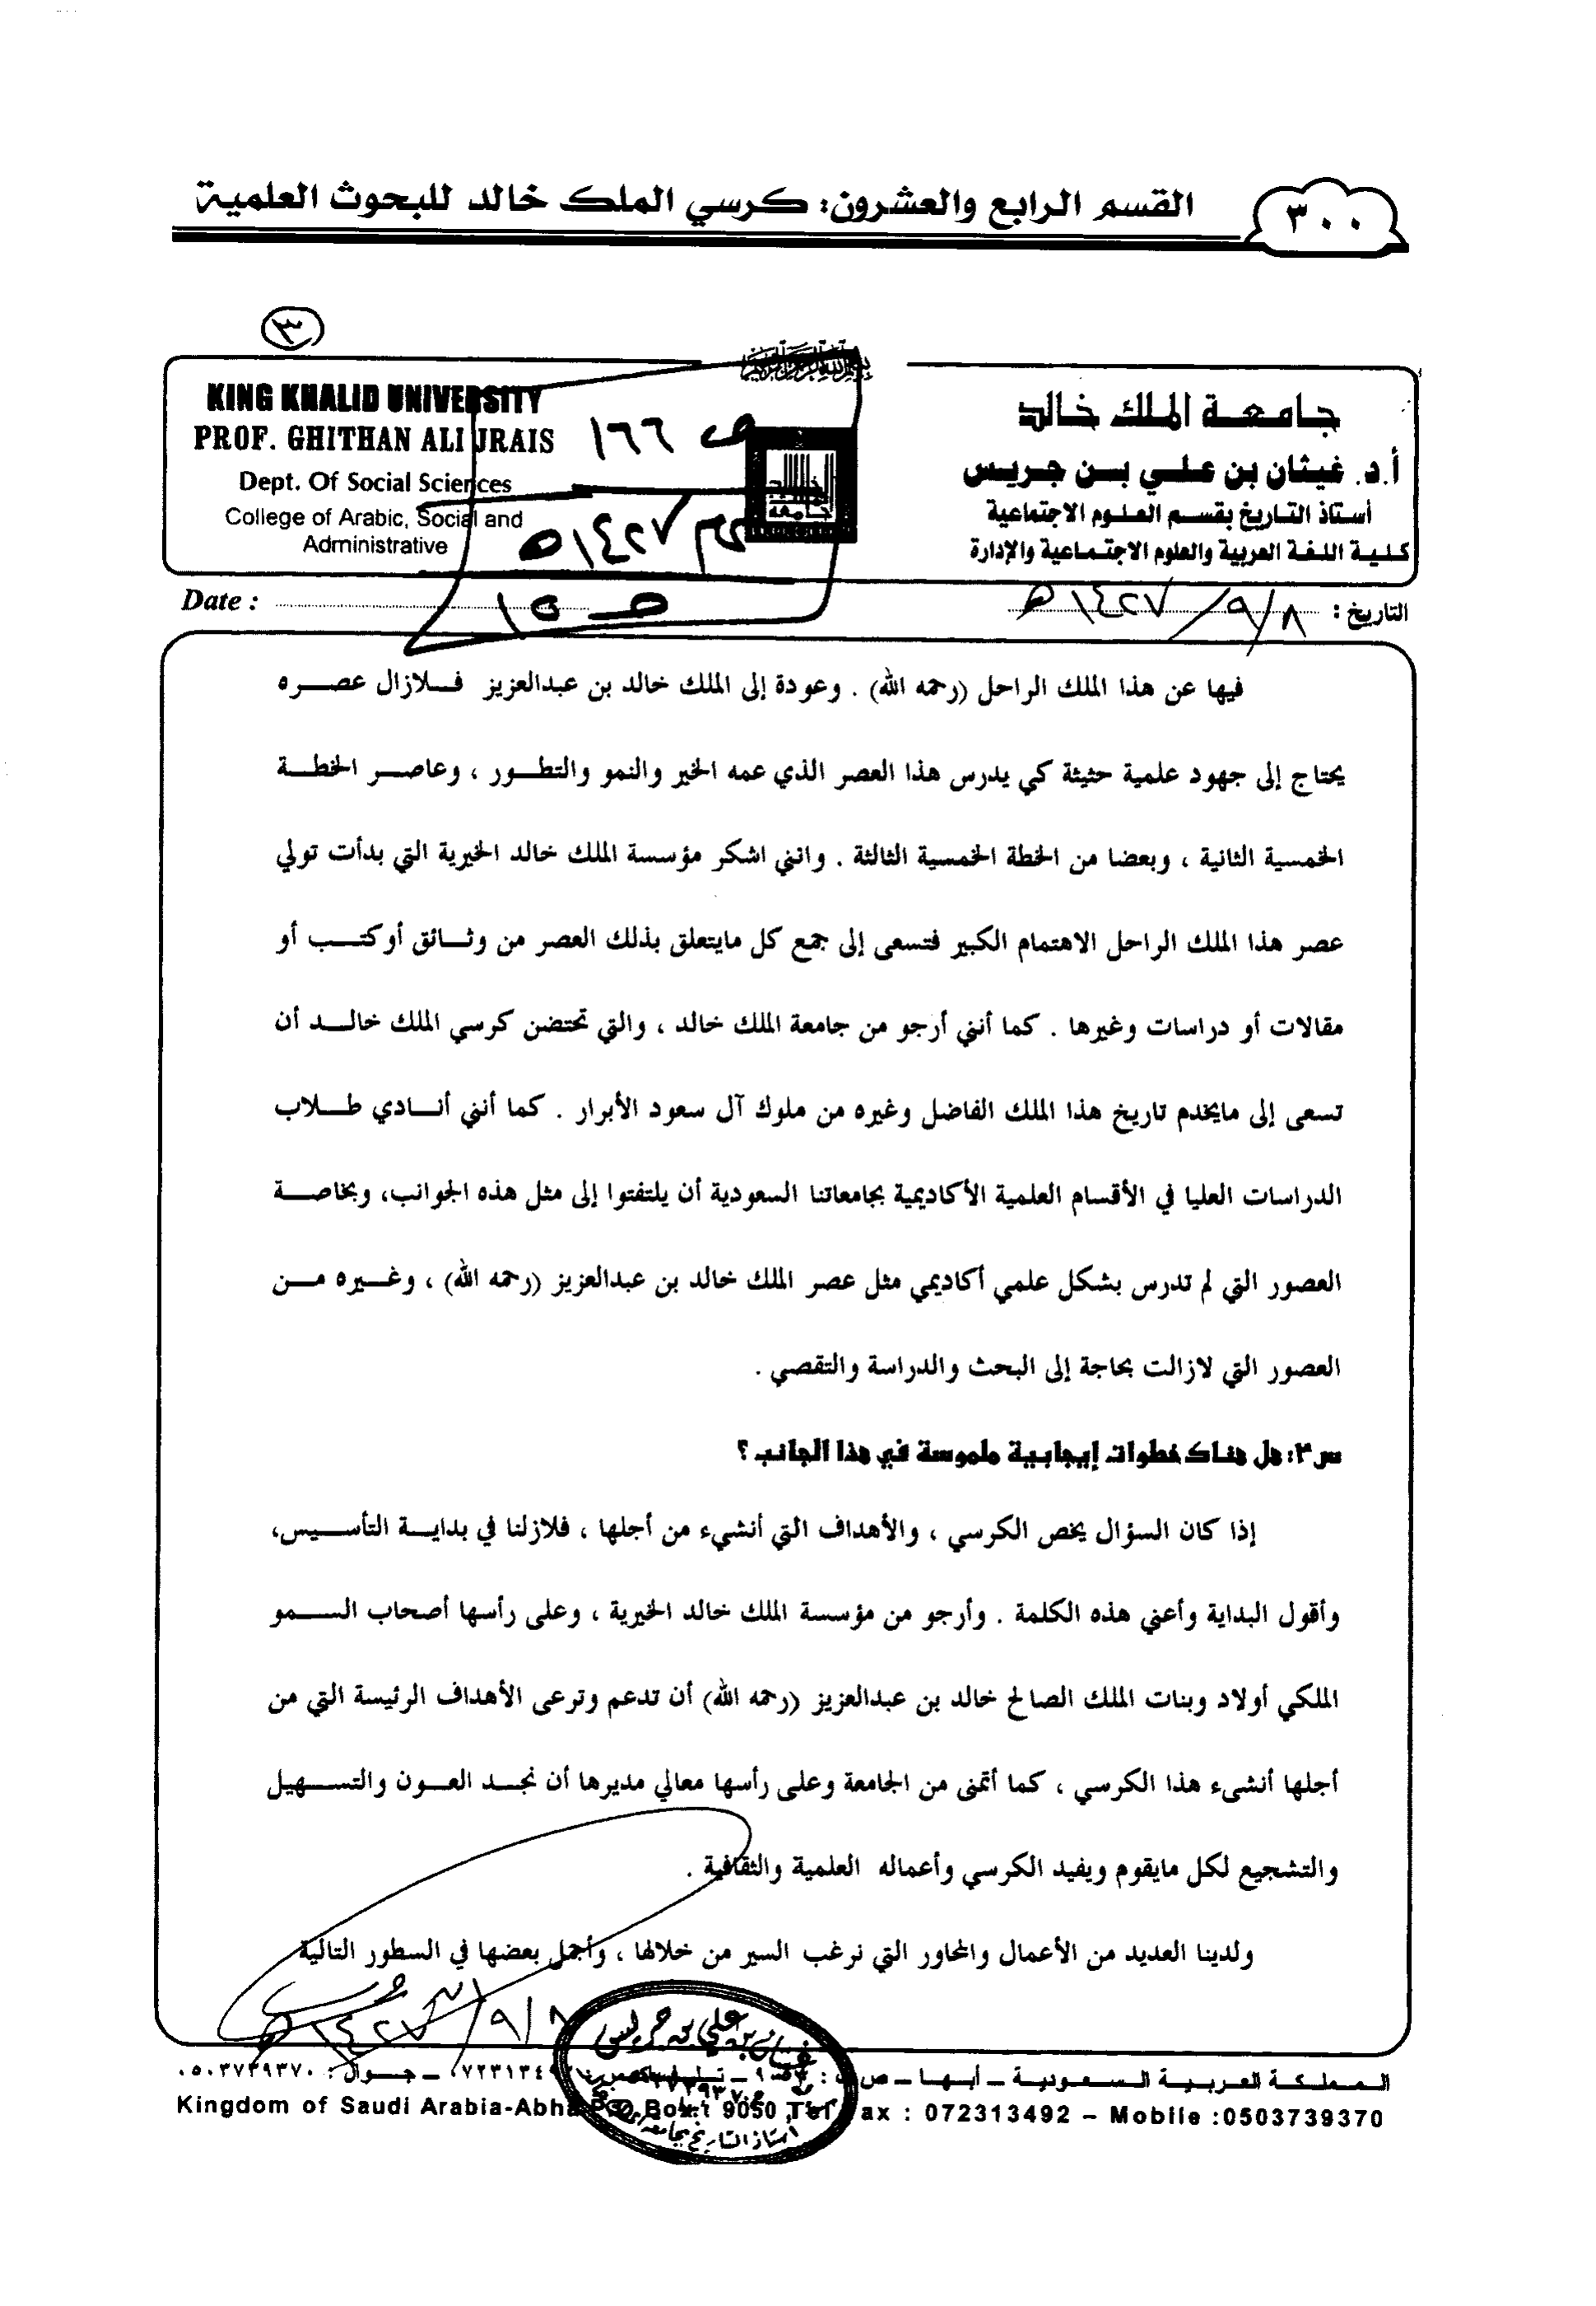 ٣٠٠
القسم الرابع والعشرون: كرسي الملك خالد للبحوث العلمية
٣
جامعة الملك خالد
أ.د. غيثان بن علي بن جريس
أستاذ التاريخ بقسم العلوم الاجتماعية
كلية اللغة العربية والعلوم الاجتماعية والإدارة
KING KHALID UNIVERSITY
PROF. GHITHAN ALI JRAIS
Dept. Of Social Sciences
College of Arabic, Social and
Administrative
ص ١٦٦
١٤٢٧هـ
ص ١٥
التاريخ : ٨/٩/١٤٢٧هـ
Date :
فيها عن هذا الملك الراحل (رحمه الله) . وعودة إلى الملك خالد بن عبدالعزيز فلازال عصره
يحتاج إلى جهود علمية حثيثة كي يدرس هذا العصر الذي عمه الخير والنمو والتطور ، وعاصر الخطة
الخمسية الثانية ، وبعضا من الخطة الخمسية الثالثة . وانني اشكر مؤسسة الملك خالد الخيرية التي بدأت تولي
عصر هذا الملك الراحل الاهتمام الكبير فتسعى إلى جمع كل مايتعلق بذلك العصر من وثائق أوكتب أو
مقالات أو دراسات وغيرها . كما أنني أرجو من جامعة الملك خالد ، والتي تحتضن كرسي الملك خالد أن
تسعى إلى مايخدم تاريخ هذا الملك الفاضل وغيره من ملوك آل سعود الأبرار . كما أنني أنادي طلاب
الدراسات العليا في الأقسام العلمية الأكاديمية بجامعاتنا السعودية أن يلتفتوا إلى مثل هذه الجوانب، وبخاصة
العصور التي لم تدرس بشكل علمي أكاديمي مثل عصر الملك خالد بن عبدالعزيز (رحمه الله) ، وغيره من
العصور التي لازالت بحاجة إلى البحث والدراسة والتقصي .
س٣: هل هناك خطوات إيجابية ملموسة في هذا الجانب ؟
إذا كان السؤال يخص الكرسي ، والأهداف التي أنشيء من أجلها ، فلازلنا في بداية التأسيس،
وأقول البداية وأعني هذه الكلمة . وأرجو من مؤسسة الملك خالد الخيرية ، وعلى رأسها أصحاب السمو
الملكي أولاد وبنات الملك الصالح خالد بن عبدالعزيز (رحمه الله) أن تدعم وترعى الأهداف الرئيسة التي من
أجلها أنشىء هذا الكرسي ، كما أتمنى من الجامعة وعلى رأسها معالي مديرها أن نجد العون والتسهيل
والتشجيع لكل مايقوم ويفيد الكرسي وأعماله العلمية والثقافية .
ولدينا العديد من الأعمال والمحاور التي نرغب السير من خلالها ، وأجمل بعضها في السطور التالية
٨/٩/١٤٢٧هـ
غيثان بن علي بن جريس
أستاذ التاريخ بجامعة
المملكة العربية السعودية – أبها – ص – جوال : ٠٥٠٣٧٣٩٣٧٠
Kingdom of Saudi Arabia-Abha P.O. Box : 9050 Tel Fax : 072313492 – Mobile :0503739370